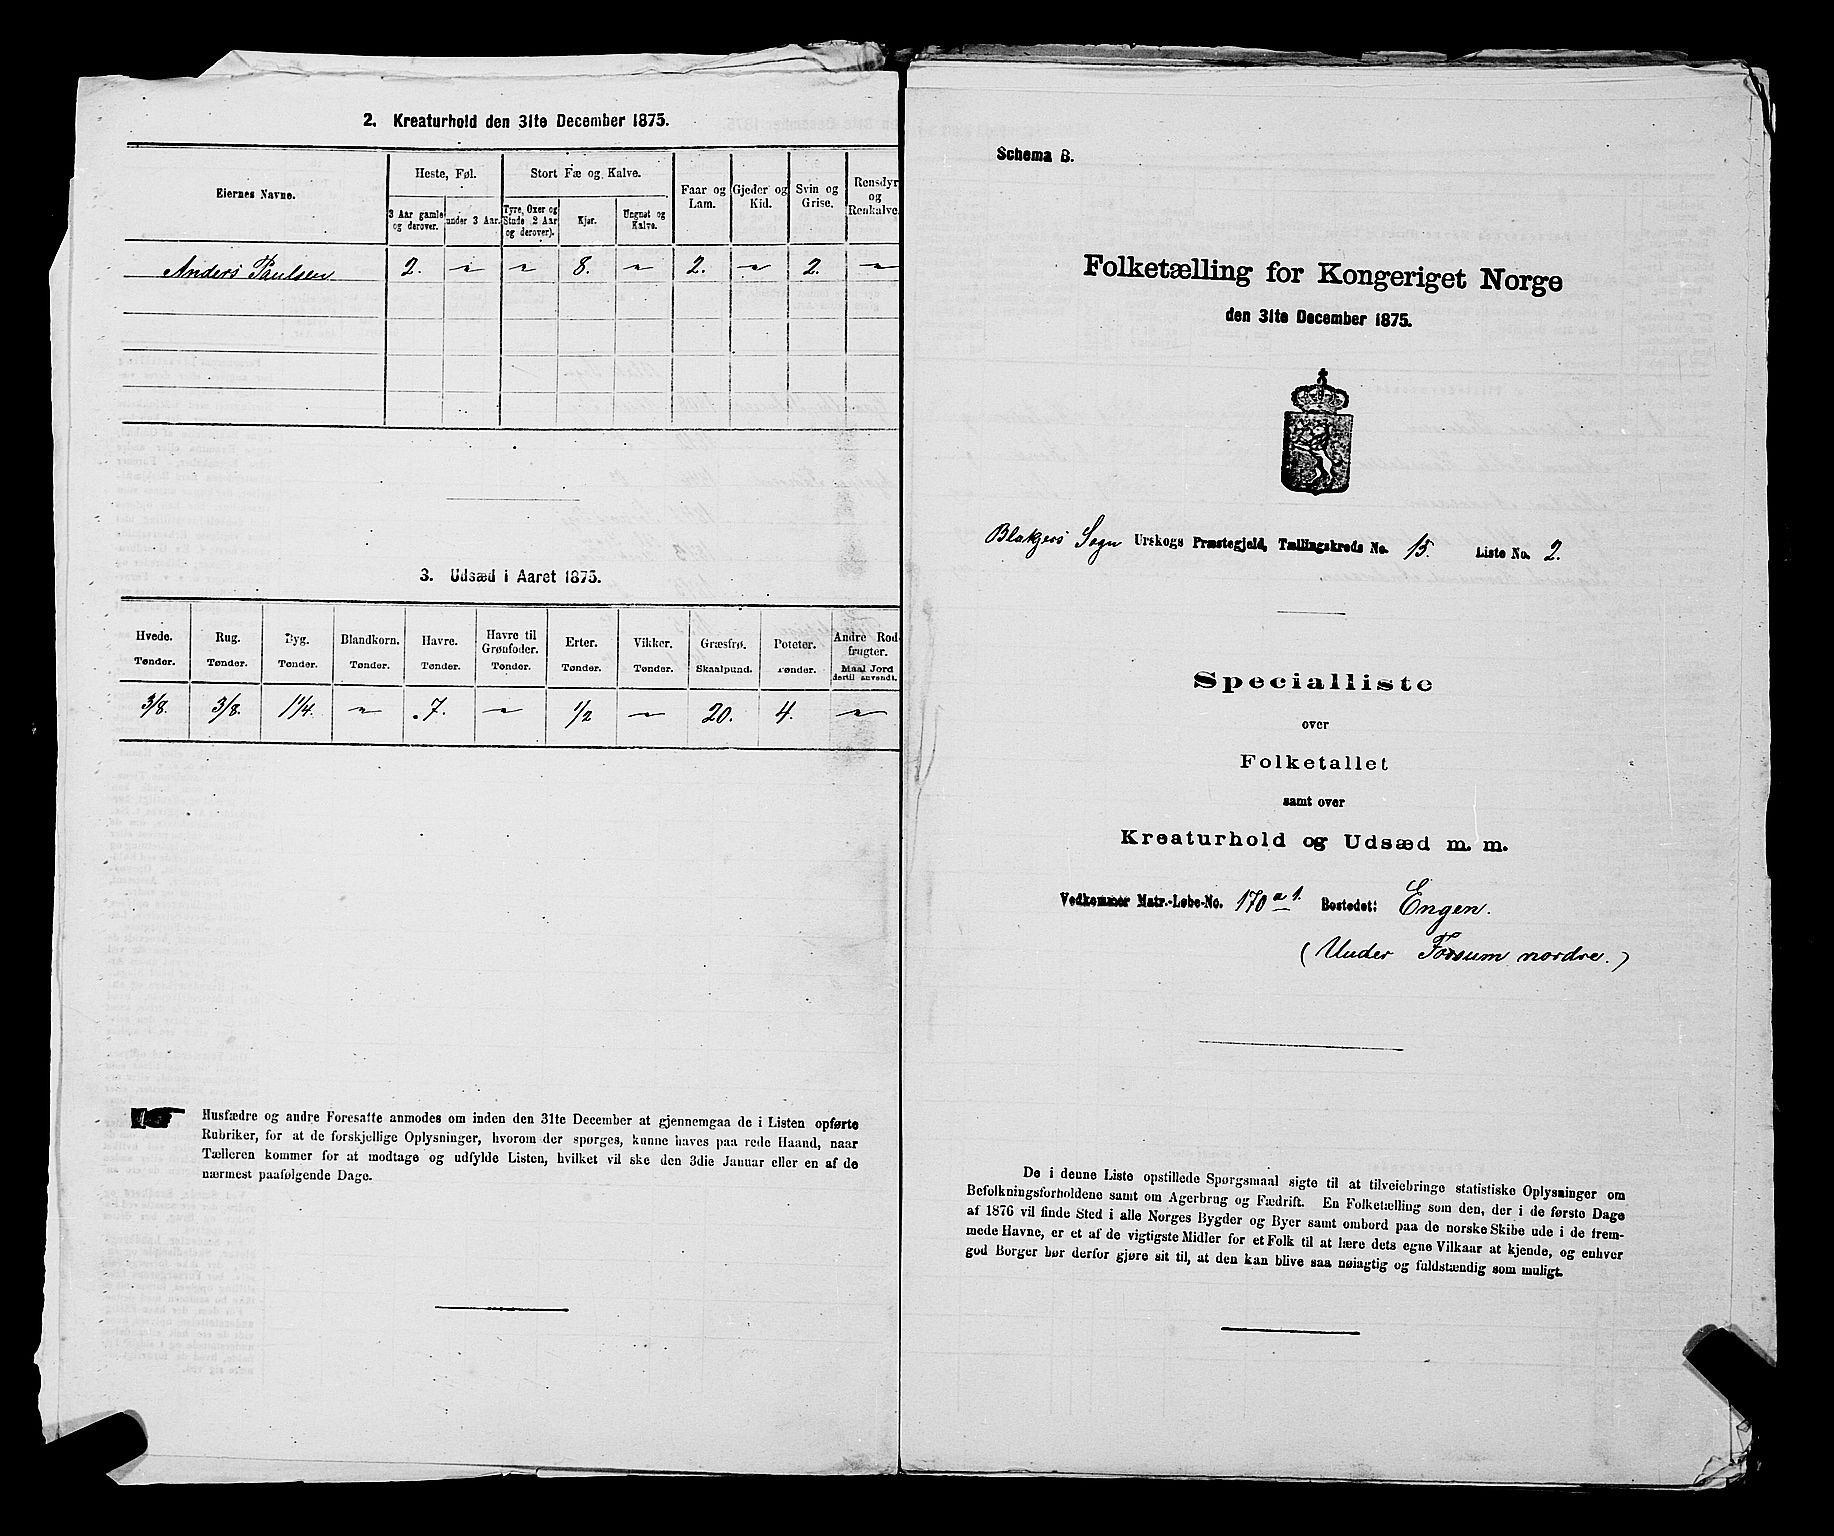 2. Kreaturhold den 31te December 1875.
Eiernes Navne.
Heste, Føl.
Stort Fæ og Kalve.
Faar og Lam.
Gjeder og Kid.
Svin og Grise.
Rensdyr og Renkalve.
3 Aar gamle og derover.
under 3 Aar.
Tyre, Oxer og Stude (2 Aar og derover).
Kjør.
Ungnøt og Kalve.
Anders Paulsen 2. " " 8. " 2. " 2. "
3. Udsæd i Aaret 1875.
Hvede. Rug. Byg. Blandkorn. Havre. Havre til Grønfoder. Erter. Vikker. Græsfrø. Poteter. Andre Rodfrugter.
Tønder. Tønder. Tønder. Tønder. Tønder. Tønder. Tønder. Tønder. Skaalpund. Tønder. Maal Jord dertil anvendt.
3/8. 3/8. 1 1/4. " 7. " 1/2 " 20. 4. "
Husfædre og andre Foresatte anmodes om inden den 31te December at gjennemgaa de i Listen opførte
Rubriker, for at de forskjellige Oplysninger, hvorom der spørges, kunne haves paa rede Haand, naar
Tælleren kommer for at modtage og udfylde Listen, hvilket vil ske den 3die Januar eller en af de
nærmest paafølgende Dage.
Schema B.
Folketælling for Kongeriget Norge
den 31te December 1875.
Blakjers Sogn Urskogs Præstegjeld, Tællingskreds No. 15. Liste No. 2.
Specialliste
over
Folketallet
samt over
Kreaturhold og Udsæd m. m.
Vedkommer Matr.-Løbe-No. 170 a 1. Bostedet: Engen.
(Under Fossum nordre.)
De i denne Liste opstillede Spørgsmaal sigte til at tilveiebringe statistiske Oplysninger om
Befolkningsforholdene samt om Agerbrug og Fædrift. En Folketælling som den, der i de første Dage
af 1876 vil finde Sted i alle Norges Bygder og Byer samt ombord paa de norske Skibe ude i de frem-
mede Havne, er et af de vigtigste Midler for et Folk til at lære dets egne Vilkaar at kjende, og enhver
god Borger bør derfor gjøre sit til, at den kan blive saa nøiagtig og fuldstændig som muligt.